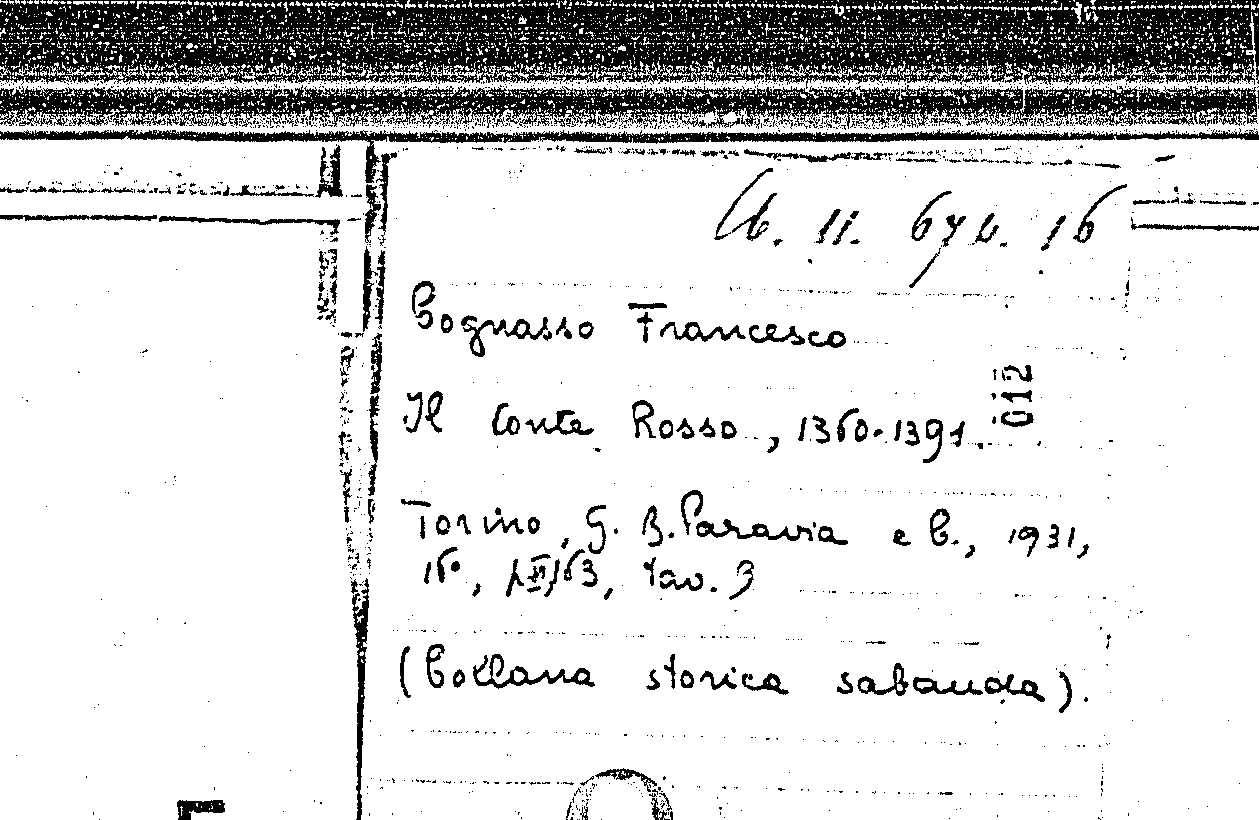 Cognasso Francesco
Il Conte Rosso, 1360-1391.
012
Torino, G. B. Paravia e C., 1931,
16°, tav. 3
(Collana storica sabauda).